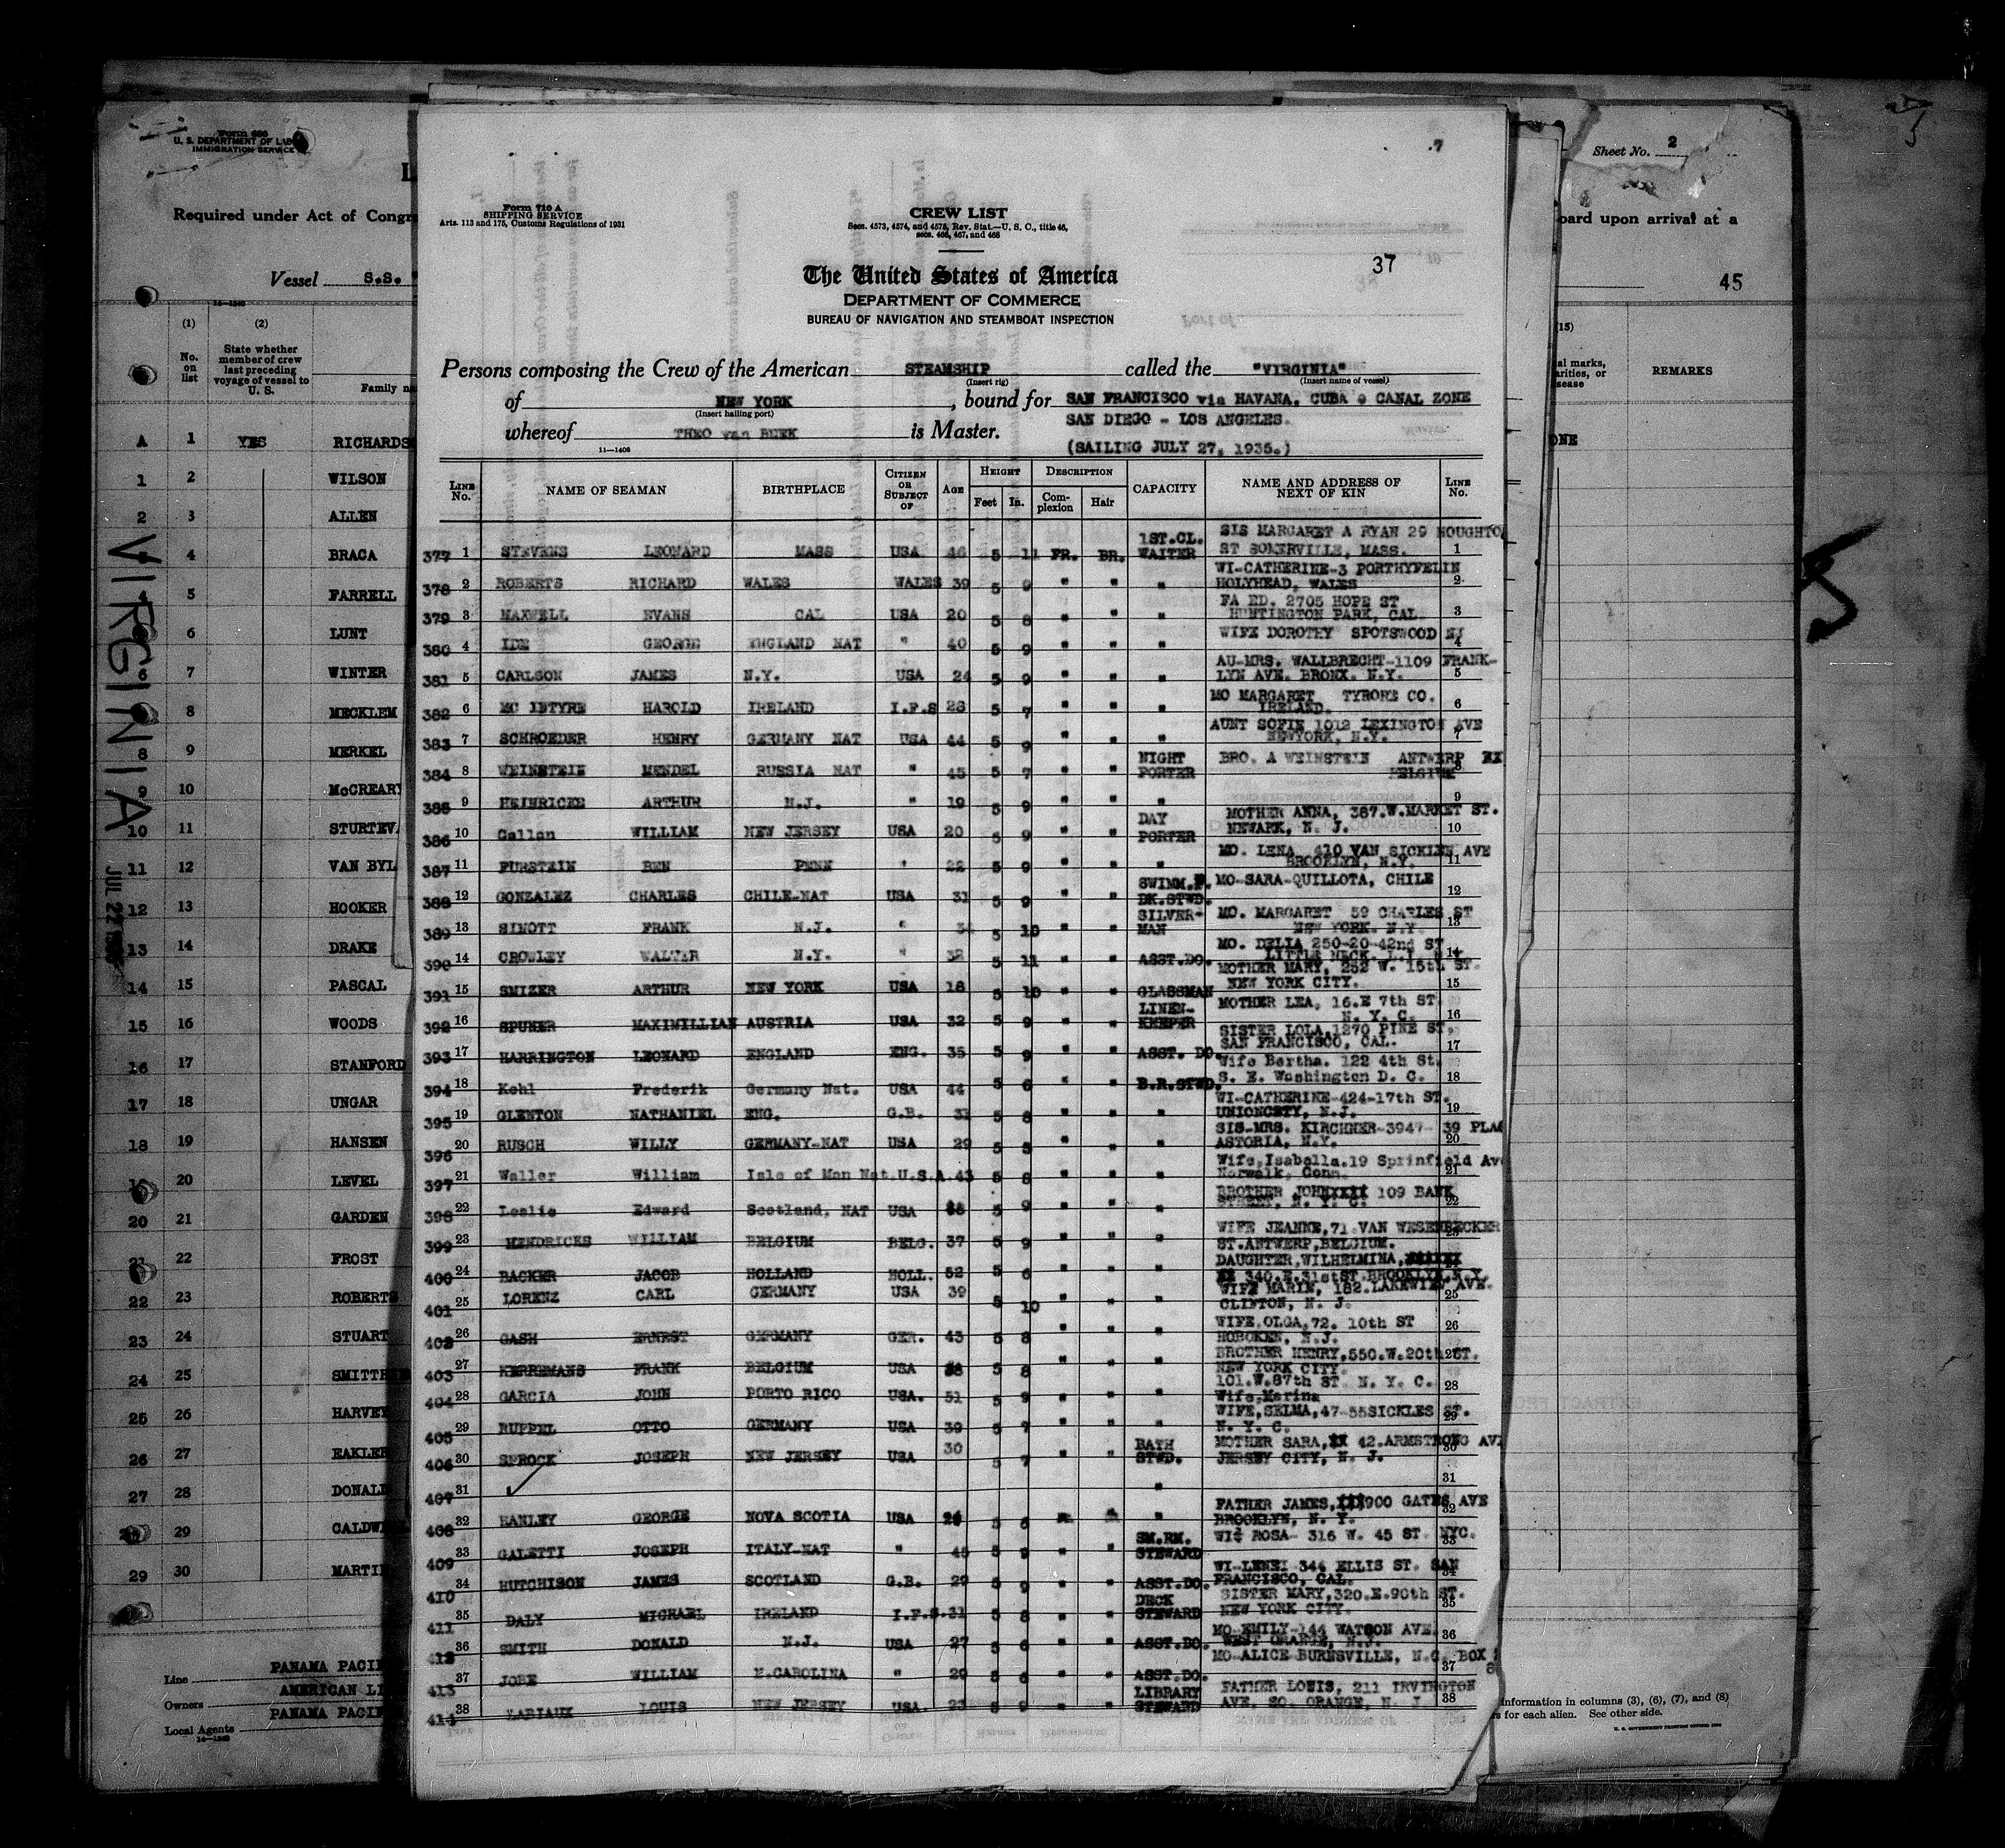 Form 689
U. S. DEPARTMENT OF LAB
IMMIGRATION SERVICE
L
Required under Act of Congr
Vessel S.S.
(1) (2)
No. on list
State whether member of crew last preceding voyage of vessel to U. S.
Family na
A 1 YES RICHARDS
1 2 WILSON
2 3 ALLEN
4 BRACA
5 FARRELL
6 LUNT
6 7 WINTER
8 MECKLEM
8 9 MERKEL
9 10 McCREARY
10 11 STURTEV
11 12 VAN BYL
12 13 HOOKER
13 14 DRAKE
14 15 PASCAL
15 16 WOODS
16 17 STANFORD
17 18 UNGAR
18 19 HANSEN
20 LEVEL
20 21 GARDEN
21 22 FROST
22 23 ROBERTS
23 24 STUART
24 25 SMITTH
25 26 HARVEY
26 27 EAKLE
27 28 DONALD
29 CALDW
29 30 MARTI
Line PANAMA PACIF
Owners AMERICAN LI
Local Agents PANAMA PACIF
14—1240
VIRGINIA
JUL 22
7
Form 710 A
SHIPPING SERVICE
Arts. 113 and 175, Customs Regulations of 1931
CREW LIST
Secs. 4573, 4574, and 4575, Rev. Stat.—U. S. C., title 46,
secs. 466, 467, and 468
37
The United States of America
DEPARTMENT OF COMMERCE
BUREAU OF NAVIGATION AND STEAMBOAT INSPECTION
Persons composing the Crew of the American STEAMSHIP called the "VIRGINIA"
(Insert rig) (Insert name of vessel)
of NEW YORK, bound for SAN FRANCISCO via HAVANA, CUBA & CANAL ZONE
(Insert hailing port) SAN DIEGO - LOS ANGELES.
whereof THEO van BEEK is Master.
11—1408 (SAILING JULY 27, 1935.)
LINE No. NAME OF SEAMAN BIRTHPLACE CITIZEN OR SUBJECT OF AGE HEIGHT Feet In. DESCRIPTION Complexion Hair CAPACITY NAME AND ADDRESS OF NEXT OF KIN LINE No.
377 1 STEVENS LEONARD MASS USA 46 5 11 FR. BR. 1ST.CL. WAITER SIS MARGARET A RYAN 29 HOUGHTO ST SOMERVILLE, MASS. 1
378 2 ROBERTS RICHARD WALES WALES 39 5 9 " " " WI-CATHERINE-3 PORTHYFELIN HOLYHEAD, WALES 2
379 3 MAXWELL EVANS CAL USA 20 5 8 " " " FA ED. 2705 HOPE ST HUNTINGTON PARK, CAL. 3
380 4 IDE GEORGE ENGLAND NAT " 40 5 9 " " " WIFE DOROTHY SPOTSWOOD NJ 4
381 5 CARLSON JAMES N.Y. USA 24 5 9 " " " AU-MRS. WALLBRECHT-1109 FRANK-LYN AVE. BRONX. N.Y. 5
382 6 MC INTYRE HAROLD IRELAND I.F.S 28 5 7 " " " MO MARGARET TYRONE CO. IRELAND. 6
383 7 SCHROEDER HENRY GERMANY NAT USA 44 5 9 " " " AUNT SOFIE 1012 LEXINGTON AVE NEWYORK, N.Y. 7
384 8 WEINSTEIN MENDEL RUSSIA NAT " 45 5 7 " " NIGHT PORTER BRO. A WEINSTEIN ANTWERP XX BELGIUM 8
385 9 HEINRICKE ARTHUR N.J. " 19 5 9 " " " 9
386 10 Callan WILLIAM NEW JERSEY USA 20 5 9 " " DAY PORTER MOTHER ANNA, 387.W.MARKET ST. NEWARK, N. J. 10
387 11 FURSTEIN BEN PENN " 22 5 9 " " " MO. LENA, 410 VAN SICKLEN AVE BROOKLYN, N.Y. 11
388 12 GONZALEZ CHARLES CHILE-NAT USA 31 5 9 " " SWIMM.P. DK.STWD. MO-SARA-QUILLOTA, CHILE 12
389 13 SINOTT FRANK N.J. " 34 5 10 " " SILVER-MAN MO. MARGARET 59 CHARLES ST NEW YORK. N.Y. 13
390 14 CROWLEY WALTER N.Y. " 32 5 11 " " ASST.DO. MO. DELIA 250-20-42nd ST LITTLE NECK. L.I. 14
391 15 SMIZER ARTHUR NEW YORK USA 18 5 10 " " GLASSMAN MOTHER MARY, 252 W. 15th ST. NEW YORK CITY. 15
392 16 SPUNER MAXIMILLIAN AUSTRIA USA 32 5 9 " " LINEN-KEEPER MOTHER LEA, 16.E 7th ST. N. Y. C. 16
393 17 HARRINGTON LEONARD ENGLAND ENG. 35 5 9 " " ASST. DO. SISTER LOLA,1270 PINE ST. SAN FRANCISCO, CAL. 17
394 18 Kohl Frederik Germany Nat. USA 44 5 6 " " B.R.STWD. Wife Bertha. 122 4th St. S. E. Washington D. C. 18
395 19 GLENTON NATHANIEL ENG. G.B. 31 5 8 " " " WI-CATHERINE-424-17th ST. UNIONCSTY, N.J. 19
396 20 RUSCH WILLY GERMANY-NAT USA 29 5 8 " " " SIS-MRS. KIRCHNER-3947- 39 PLA ASTORIA, N.Y. 20
397 21 Waller William Isle of Man Nat.U.S.A.43 5 8 " " " Wife,Isabella.19 Sprinfield Ave Norwalk, Conn. 21
398 22 Leslie Edward Scotland, NAT USA 5 9 " " " BROTHER JOHNXXXX 109 BANK STREET, N. Y. C. 22
399 23 HENDRICKS WILLIAM BELGIUM BELG. 37 5 9 " " " WIFE JEANNE,71 VAN WESENBECKER ST.ANTWERP,BELGIUM. 23
400 24 BACKER JACOB HOLLAND HOLL. 52 5 6 " " " DAUGHTER,WILHELMINA, 340.E.31stST.BROOKLYN.N.Y. 24
401 25 LORENZ CARL GERMANY USA 39 5 10 " " " WIFE MARIE, 182.LAKEWIEW AVE. CLIFTON, N. J. 25
402 26 GASH ERNEST GERMANY GER. 43 5 8 " " " WIFE,OLGA,72. 10th ST HOBOKEN, N.J. 26
403 27 KERREMANS FRANK BELGIUM USA 5 8 " " " BROTHER HENRY,550.W.20th ST. NEW YORK CITY. 27
404 28 GARCIA JOHN PORTO RICO USA. 51 5 9 " " " 101.W.87th ST. N. Y. C. Wife,Marina 28
405 29 RUPPEL OTTO GERMANY USA 39 5 7 " " " WIFE,SELMA,47-55SICKLES ST. N. Y. C. 29
406 30 SPROCK JOSEPH NEW JERSEY USA 30 5 7 " " BATH STWD. MOTHER SARA,XX 42.ARMSTRONG AV. JERSEY CITY, N. J. 30
407 31 " 31
408 32 HANLEY GEORGE NOVA SCOTIA USA 5 6 " " " FATHER JAMES,XXX900 GATES AVE BROOKLYN, N. Y. 32
409 33 GALETTI JOSEPH ITALY-NAT " 45 5 9 " " SM.RM. STEWARD ROSA- 316 W. 45 ST. NYC. 33
410 34 HUTCHISON JAMES SCOTLAND G.B. 29 5 9 " " ASST.DO. WI-LENEI 344 ELLIS ST. SAN FRANCISCO, CAL. 34
411 35 DALY MICHAEL IRELAND I.F.S.21 5 8 " " DECK STEWARD SISTER MARY,320.E.90th ST. NEW YORK CITY. 35
412 36 SMITH DONALD N.J. USA 27 5 6 " " ASST.DO. MO EMILY-144 WATSON AVE. WEST ORANGE, N.J. 36
413 37 JOBE WILLIAM N.CAROLINA " 29 5 6 " " ASST.DO. MO-ALICE BURNSVILLE, N.C. BOX 37
414 38 LOUIS NEW JERSEY USA. 23 5 9 " " LIBRARY STEWARD FATHER LOUIS, 211 IRVINGTON AVE. SO. ORANGE, N. J. 38
Sheet No. 2
oard upon arrival at a
45
(15)
al marks,
arities, or
sease
REMARKS
ONE
information in columns (3), (6), (7), and (8)
s for each alien. See other side.
U. S. GOVERNMENT PRINTING OFFICE